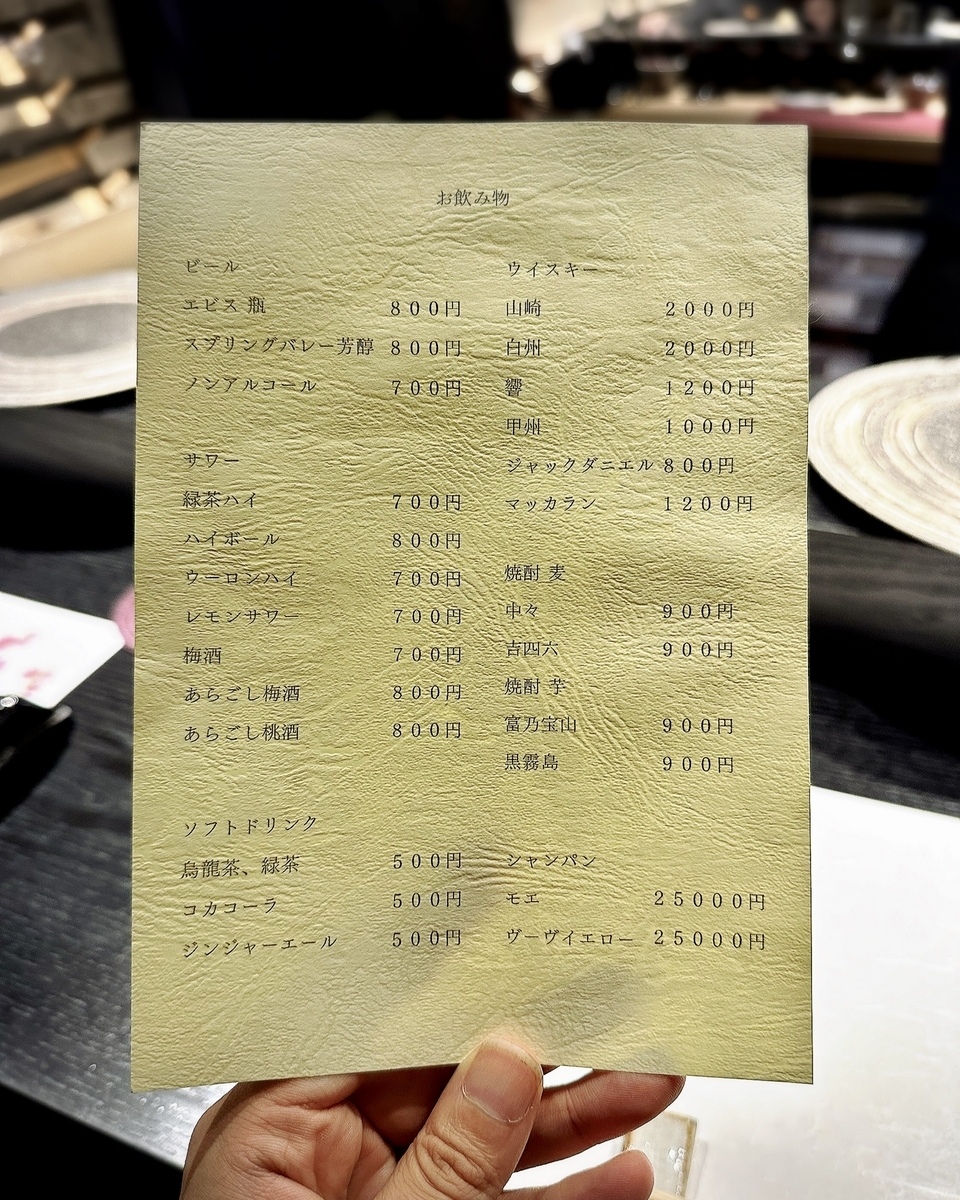 お飲み物
ビール
エビス 瓶 800円
スプリングバレー芳醇 800円
ノンアルコール 700円
サワー
緑茶ハイ 700円
ハイボール 800円
ウーロンハイ 700円
レモンサワー 700円
梅酒 700円
あらごし梅酒 800円
あらごし桃酒 800円
ソフトドリンク
烏龍茶、緑茶 500円
コカコーラ 500円
ジンジャーエール 500円
ウイスキー
山崎 2000円
白州 2000円
響 1200円
甲州 1000円
ジャックダニエル 800円
マッカラン 1200円
焼酎 麦
中々 900円
吉四六 900円
焼酎 芋
富乃宝山 900円
黒霧島 900円
シャンパン
モエ 25000円
ヴーヴイエロー 25000円